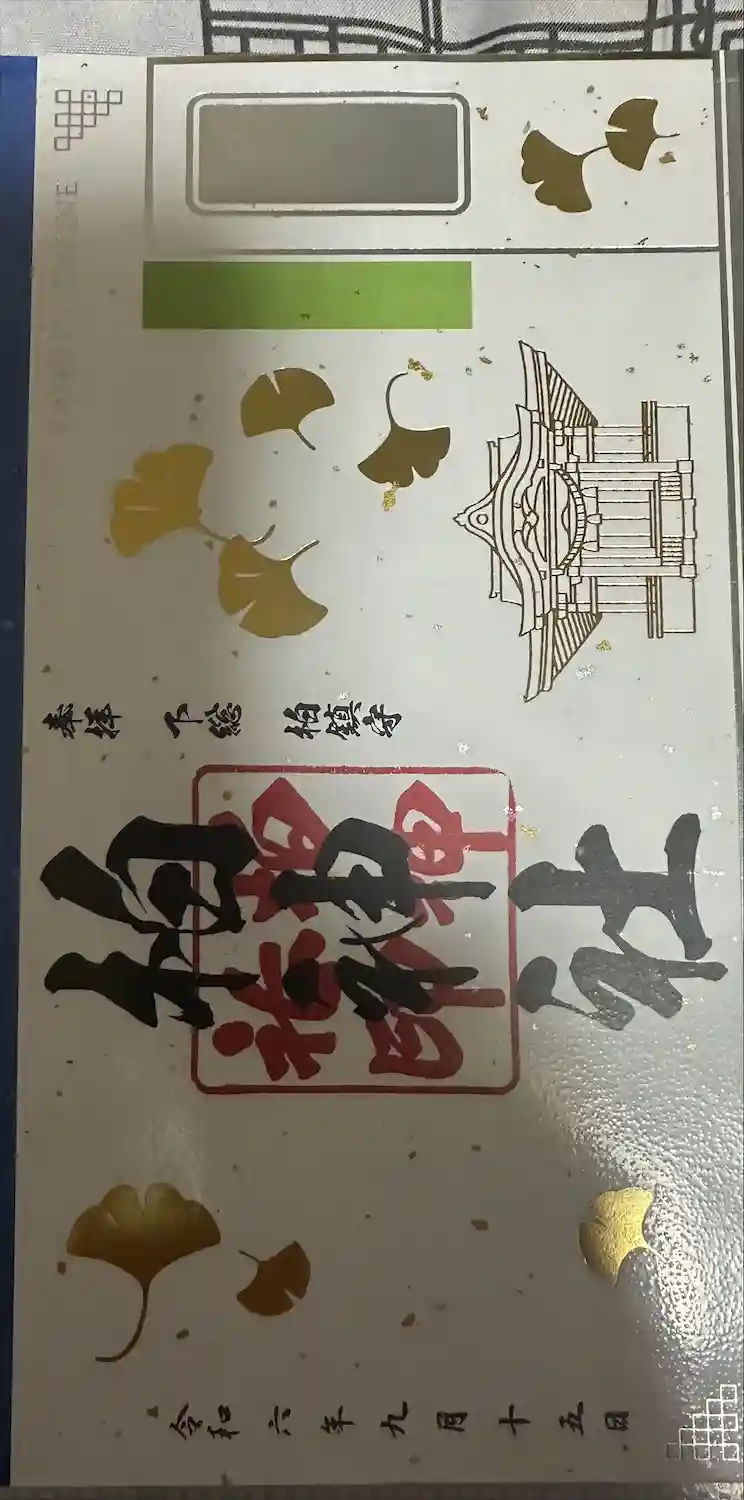 KASHIWA SHRINE
奉拝 下総 柏鎮守
柏神社
柏神
社印
令和六年九月十五日